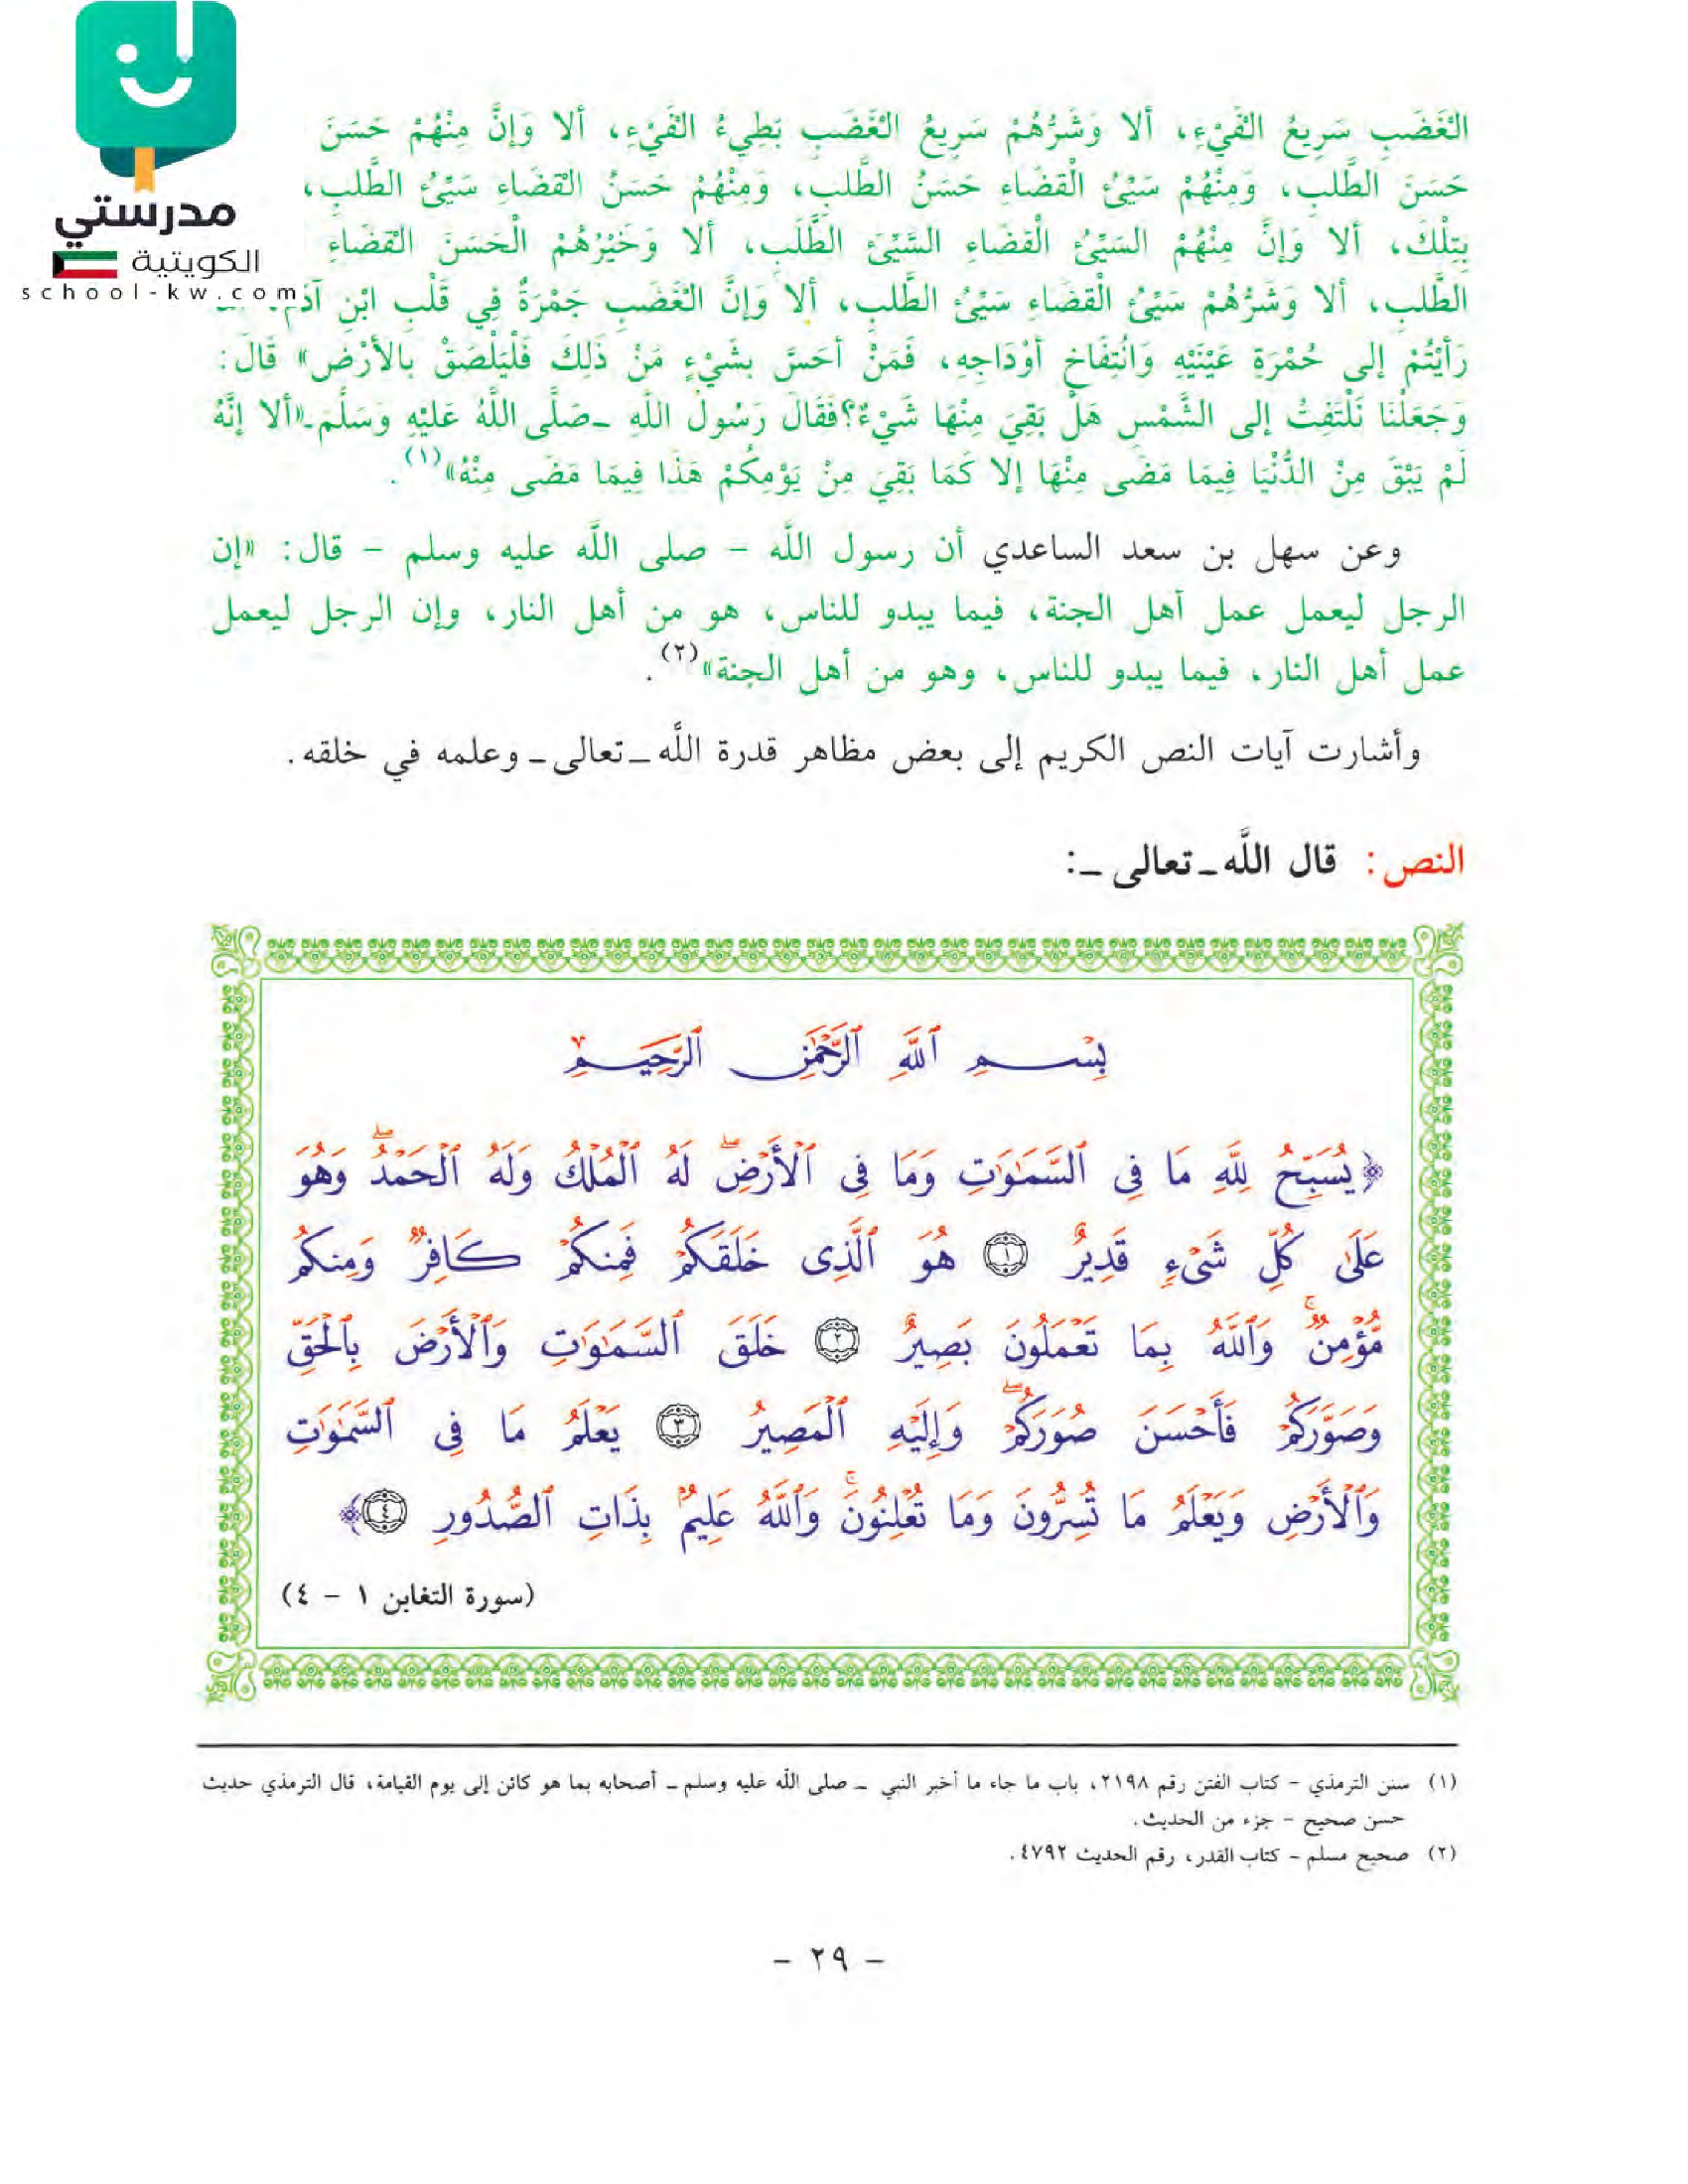 مدرستي
الكويتية
school-kw.com
الغَضَبِ سَرِيعُ الفَيْءِ، ألا وَشَرُّهُمْ سَرِيعُ الغَضَبِ بَطِيءُ الفَيْءِ، ألا وَإنَّ مِنْهُمْ حَسَنَ
حَسَنَ الطَّلبِ، وَمِنْهُمْ سَيِّئُ الْقَضَاءِ حَسَنُ الطَّلبِ، وَمِنْهُمْ حَسَنُ القَضَاءِ سَيِّئُ الطَّلبِ،
بِتِلْكَ، ألا وَإنَّ مِنْهُمْ السَيِّئُ الْقَضَاءِ السَّيِّئَ الطَّلَبِ، ألا وَخَيْرُهُمْ الْحَسَنَ القَضَاءِ
الطَّلبِ، ألا وَشَرُّهُمْ سَيِّئُ الْقَضَاءِ سَيِّئُ الطَّلبِ، ألا وَإنَّ الغَضَبِ جَمْرَةٌ فِي قَلْبِ ابْنِ
رَأيْتُمْ إلى حُمْرَةِ عَيْنَيْهِ وَانْتِفَاخِ أوْدَاجِهِ، فَمَنْ أحَسَّ بشَيْءٍ مَنْ ذَلِكَ فَلْيَلْصَقْ بالأرْضِ» قَالَ:
وَجَعَلْنَا نَلْتَفِتُ إلى الشَّمْسِ هَلْ بَقِيَ مِنْهَا شَيْءٌ؟فَقَالَ رَسُولُ اللَّهِ ـصَلَّى اللَّهُ عَليْهِ وَسَلَّمَ ـ«ألا إنَّهُ
لَمْ يَبْقَ مِنْ الدُّنْيَا فِيمَا مَضَى مِنْهَا إلا كَمَا بَقِيَ مِنْ يَوْمِكُمْ هَذَا فِيمَا مَضَى مِنْهُ»(١).
وعن سهل بن سعد الساعدي أن رسول اللَّه - صلى اللَّه عليه وسلم - قال: «إن
الرجل ليعمل عمل أهل الجنة، فيما يبدو للناس، هو من أهل النار، وإن الرجل ليعمل
عمل أهل النار، فيما يبدو للناس، وهو من أهل الجنة»(٢).
وأشارت آيات النص الكريم إلى بعض مظاهر قدرة اللَّه ـ تعالى ـ وعلمه في خلقه.
النص: قال اللَّه ـ تعالى ـ:
بِسْمِ ٱللَّهِ ٱلرَّحْمَٰنِ ٱلرَّحِيمِ
﴿يُسَبِّحُ لِلَّهِ مَا فِى ٱلسَّمَٰوَٰتِ وَمَا فِى ٱلْأَرْضِۖ لَهُ ٱلْمُلْكُ وَلَهُ ٱلْحَمْدُۖ وَهُوَ
عَلَىٰ كُلِّ شَىْءٍ قَدِيرٌ ١ هُوَ ٱلَّذِى خَلَقَكُمْ فَمِنكُمْ كَافِرٌ وَمِنكُم
مُّؤْمِنٌۚ وَٱللَّهُ بِمَا تَعْمَلُونَ بَصِيرٌ ٢ خَلَقَ ٱلسَّمَٰوَٰتِ وَٱلْأَرْضَ بِٱلْحَقِّ
وَصَوَّرَكُمْ فَأَحْسَنَ صُوَرَكُمْۖ وَإِلَيْهِ ٱلْمَصِيرُ ٣ يَعْلَمُ مَا فِى ٱلسَّمَٰوَٰتِ
وَٱلْأَرْضِ وَيَعْلَمُ مَا تُسِرُّونَ وَمَا تُعْلِنُونَۚ وَٱللَّهُ عَلِيمٌۢ بِذَاتِ ٱلصُّدُورِ ٤﴾
(سورة التغابن ١ - ٤)
(١) سنن الترمذي - كتاب الفتن رقم ٢١٩٨، باب ما جاء ما أخبر النبي ـ صلى اللَّه عليه وسلم ـ أصحابه بما هو كائن إلى يوم القيامة، قال الترمذي حديث
حسن صحيح - جزء من الحديث.
(٢) صحيح مسلم - كتاب القدر، رقم الحديث ٤٧٩٢.
- ٢٩ -